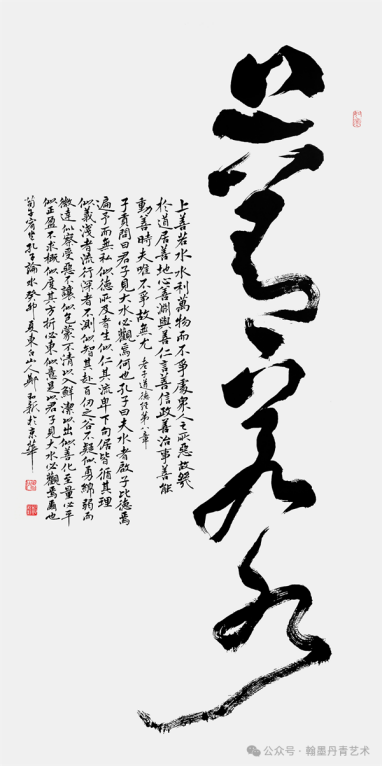 上善若水
上善若水水利萬物而不爭處衆人之所惡故幾
於道居善地心善淵與善仁言善信政善治事善能
動善時夫唯不爭故無尤 老子道德經第八章
子貢問曰君子見大水必觀焉何也孔子曰夫水者啟子比德焉
遍予而無私似德所及者生似仁其流卑下句倨皆循其理
似義淺者流行深者不測似智其赴百仞之谷不疑似勇綿弱而
微達似察受惡不讓似包蒙不清以入鮮潔以出似善化至量必平
似正盈不求概似度其万折必東似意是以君子見大水必觀焉爾也
荀子宥坐孔子論水癸卯夏東白山人鄭於京華
公众号·翰墨丹青艺术